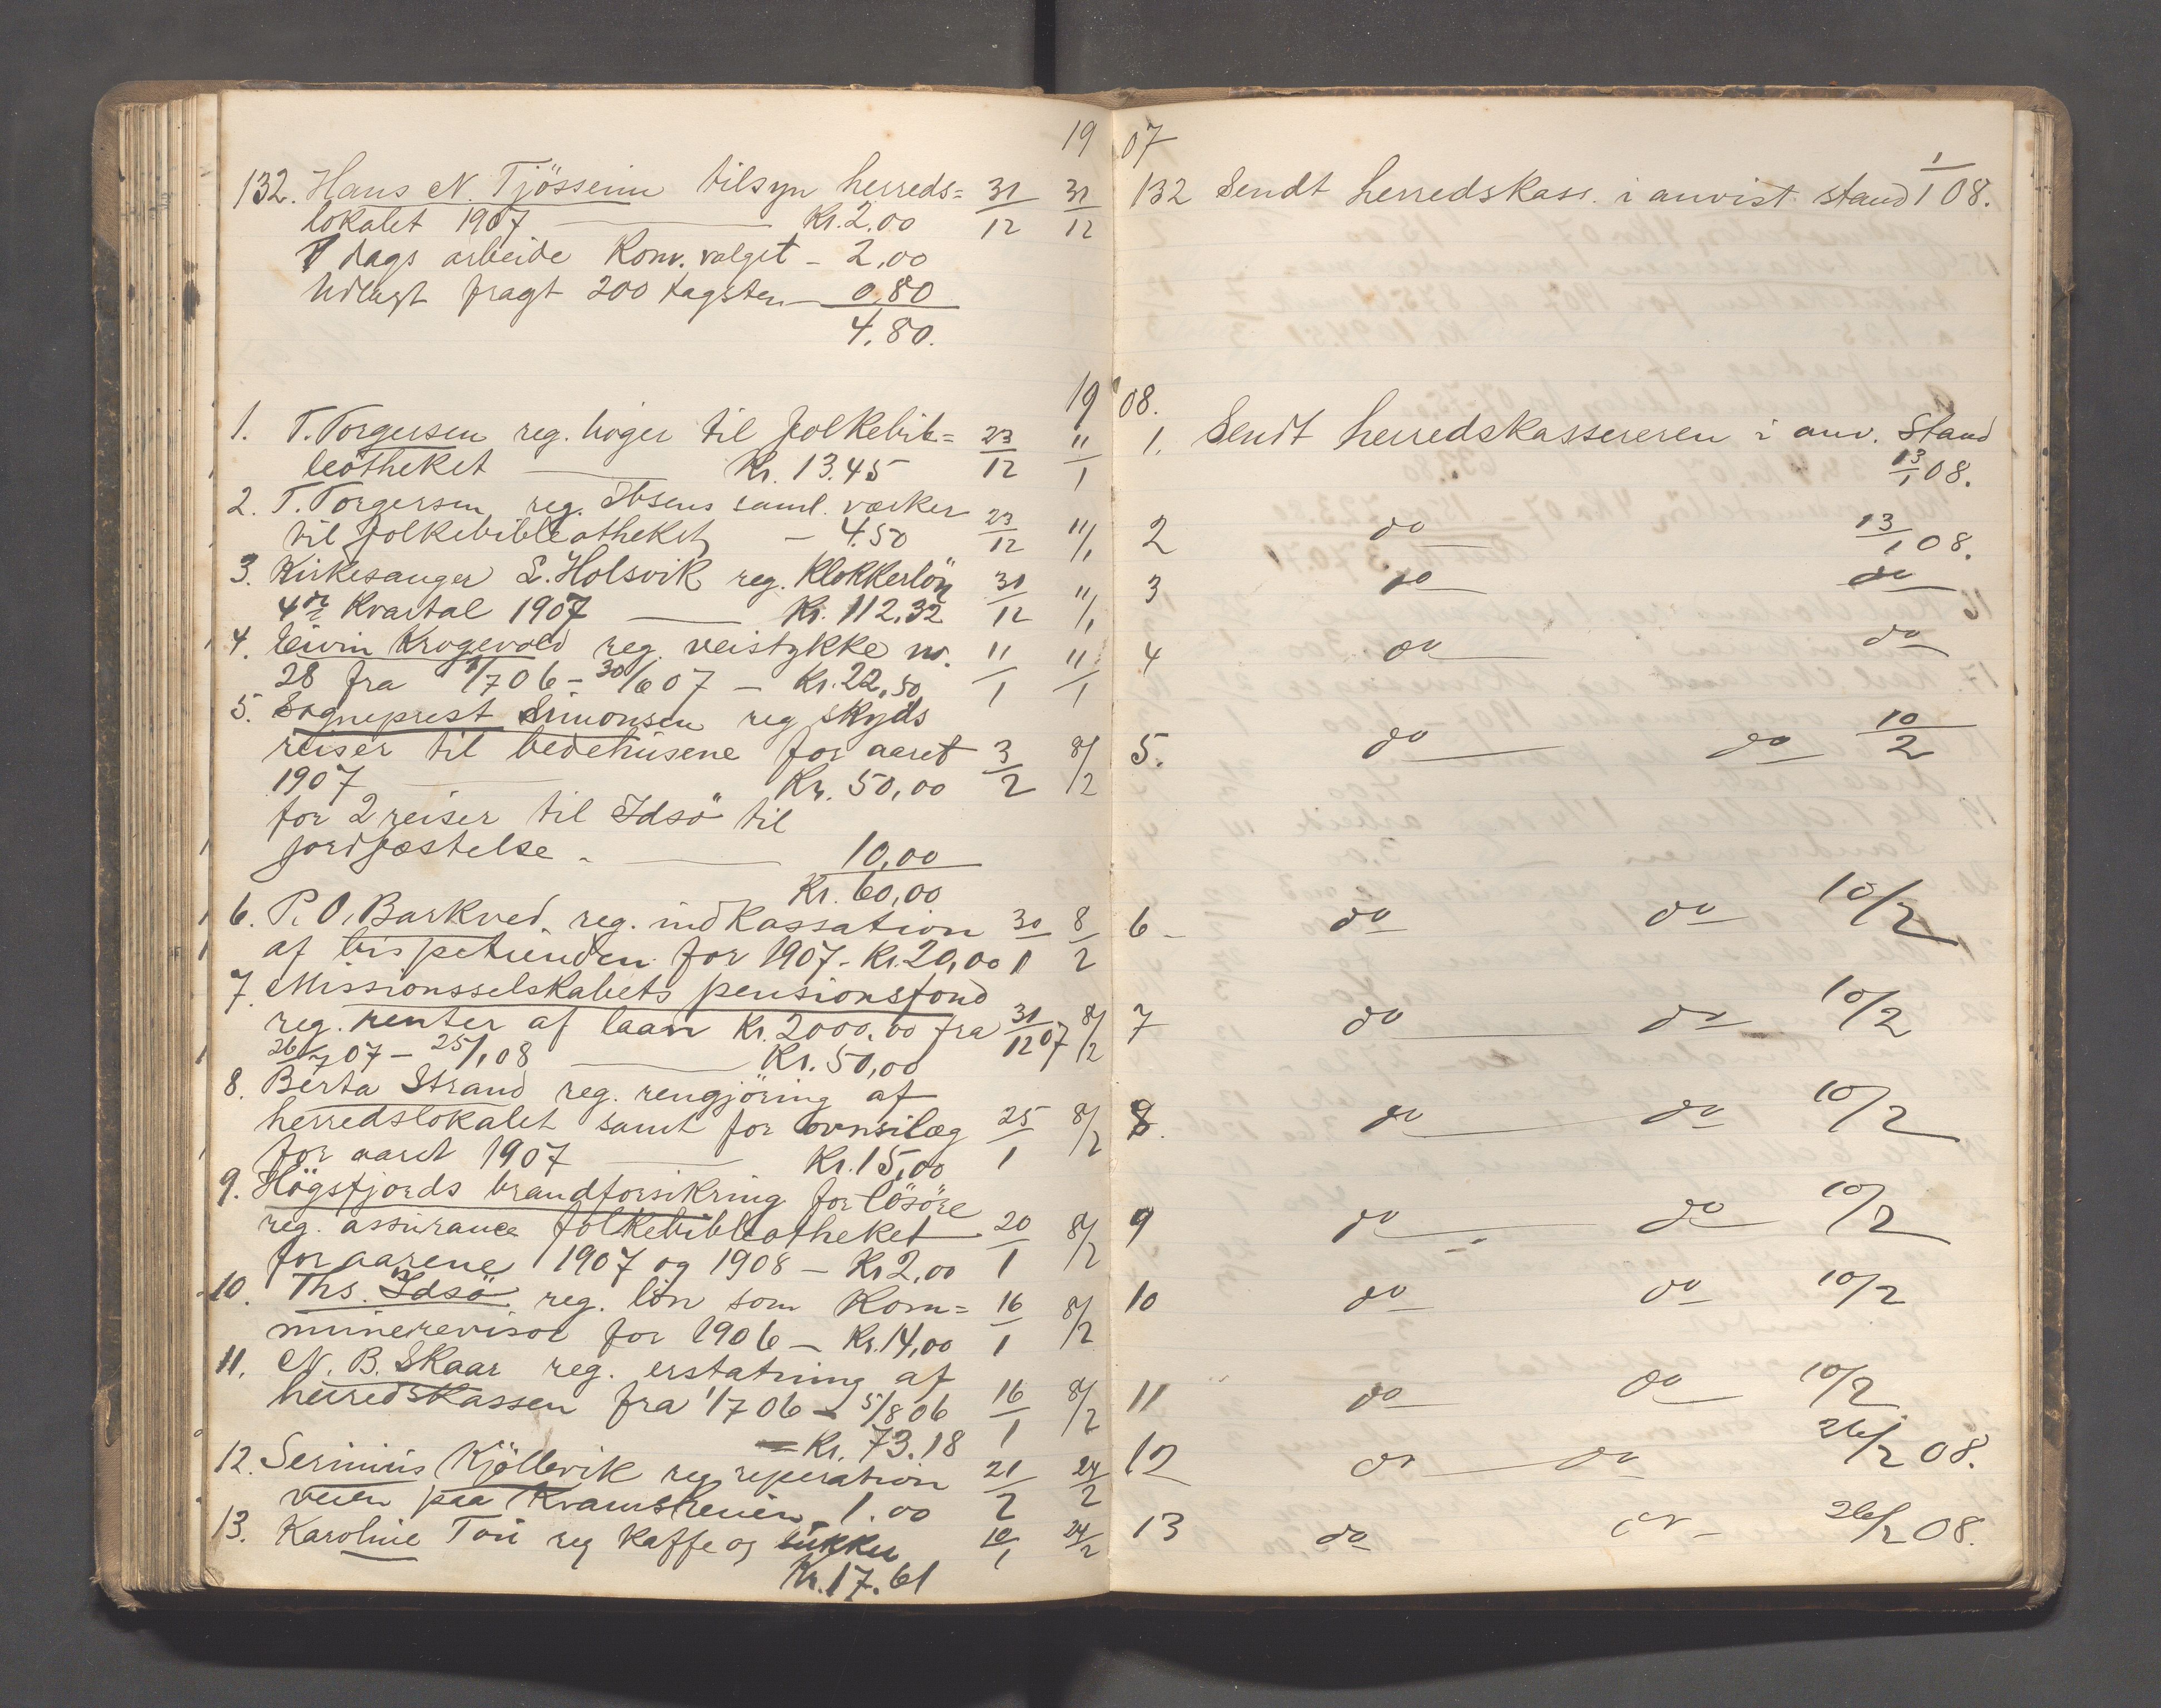 19 07
132. Hans N. Tjösseim tilsyn herreds= 31/12 31/12
lokalet 1907 — Kr. 2.00
1 dags arbeide Kom. valget - 2,00
Udlagt fragt 200 tagsten — 0,80
4,80.
19 08.
1. T. Torgersen reg. böger til folkebib= 23/12 11/1
leotheket — Kr. 13.45
2. T. Torgersen reg. Ibsens saml. værker
til folkebibleotheket — 4.50 23/12 11/1
3. Kirkesanger L. Holsvik reg. Klokkerlön 31/12 11/1
4de Kvartal 1907 — Kr. 112,32
4. Eivin Krogevold reg. veistykke nr. 11/1 11/1
28 fra 1/7 06 - 30/6 07 — Kr. 22,50
5. Sogneprest Simonsen reg skyds
reiser til bedehusene for aaret 3/2 8/2
1907 — Kr. 50,00
for 2 reiser til Idsö til
jordfæstelse — 10,00
Kr. 60,00
6. P. O. Barkved. reg. indkassation 30/1 8/2
af bispetienden for 1907 - Kr. 20,00
7. Missionsselskabets pensionsfond
reg. renter af laan Kr. 2000,00 fra 31/12 07 8/2
26/7 07 - 25/1 08 — Kr. 50,00
8. Berta Strand reg. rengjöring af
herredslokalet samt for ovnsilæg 25/1 8/2
for aaret 1907 — Kr. 15,00
9. Högsfjords brandforsikring for lösöre
reg. assurance folkebibleotheket 20/1 8/2
for aarene 1907 og 1908 — Kr 2,00
10. Ths. Idsö reg. lön som Kom= 16/1 8/2
munerevisor for 1906 — Kr. 14,00
11. N. B. Skaar reg. erstatning af
herredskassen fra 1/7 06 - 5/8 06 16/1 8/2
= Kr. 73.18
12. Serinius Kjöllevik reg reperation 21/2 24/2
veien paa Kvamsheien - 1.00
13. Karoline Tou reg Kaffe og sukker 10/1 24/2
Kr. 17.61
132 Sendt herredskass. i anvist stand 1/1 08.
1. Sendt herredskassereren i anv. Stand
13/1 08.
2 do 13/1 08.
3 do do
4 do do
5. do do 10/2
6 - do do 10/2
7 do do 10/2
8. do do 10/2
9 do do 10/2
10 do do 10/2
11 do do 10/2
12 do do 26/2 08.
13 do do 26/2 08.